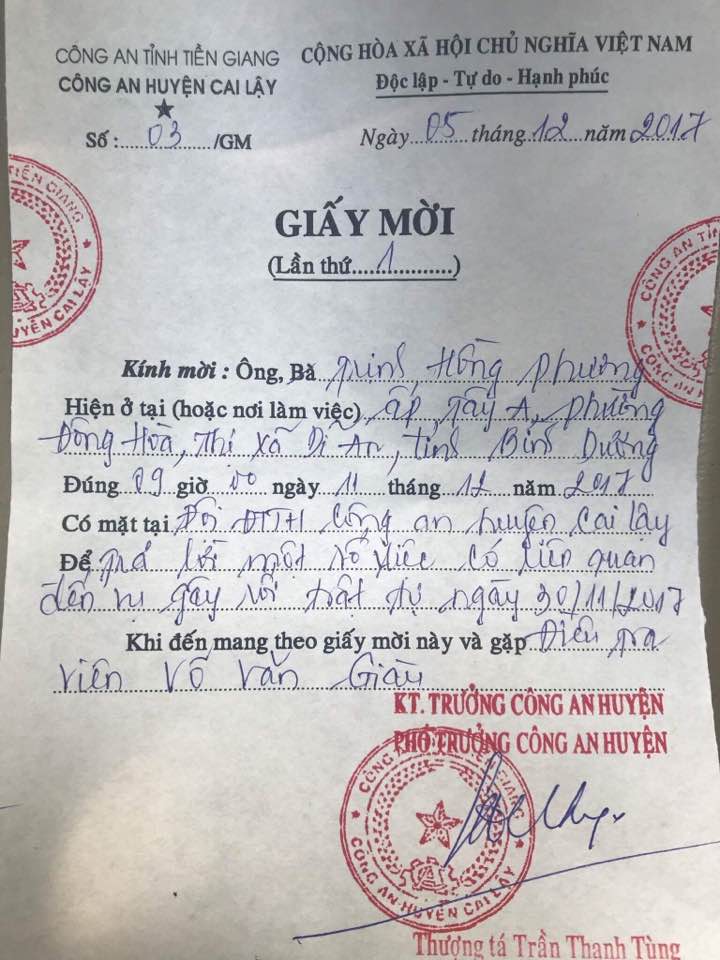 CÔNG AN TỈNH TIỀN GIANG
CÔNG AN HUYỆN CAI LẬY
Số: 03 /GM
CỘNG HÒA XÃ HỘI CHỦ NGHĨA VIỆT NAM
Độc lập - Tự do - Hạnh phúc
Ngày 05 tháng 12 năm 2017
GIẤY MỜI
(Lần thứ 1)
Kính mời : Ông, Bà Trịnh Hồng Phương
Hiện ở tại (hoặc nơi làm việc) ấp Tây A, phường
Đông Hòa, Thị Xã Dĩ An, tỉnh Bình Dương
Đúng 09 giờ 00 ngày 11 tháng 12 năm 2017
Có mặt tại Đội ĐTTH Công an huyện Cai Lậy
Để trả lời một số việc có liên quan
đến vụ gây rối trật tự ngày 30/11/2017
Khi đến mang theo giấy mời này và gặp Điều tra
viên Võ Văn Giàu
KT. TRƯỞNG CÔNG AN HUYỆN
PHÓ TRƯỞNG CÔNG AN HUYỆN
CÔNG AN TỈNH TIỀN GIANG
CÔNG AN HUYỆN CAI LẬY
Thượng tá Trần Thanh Tùng